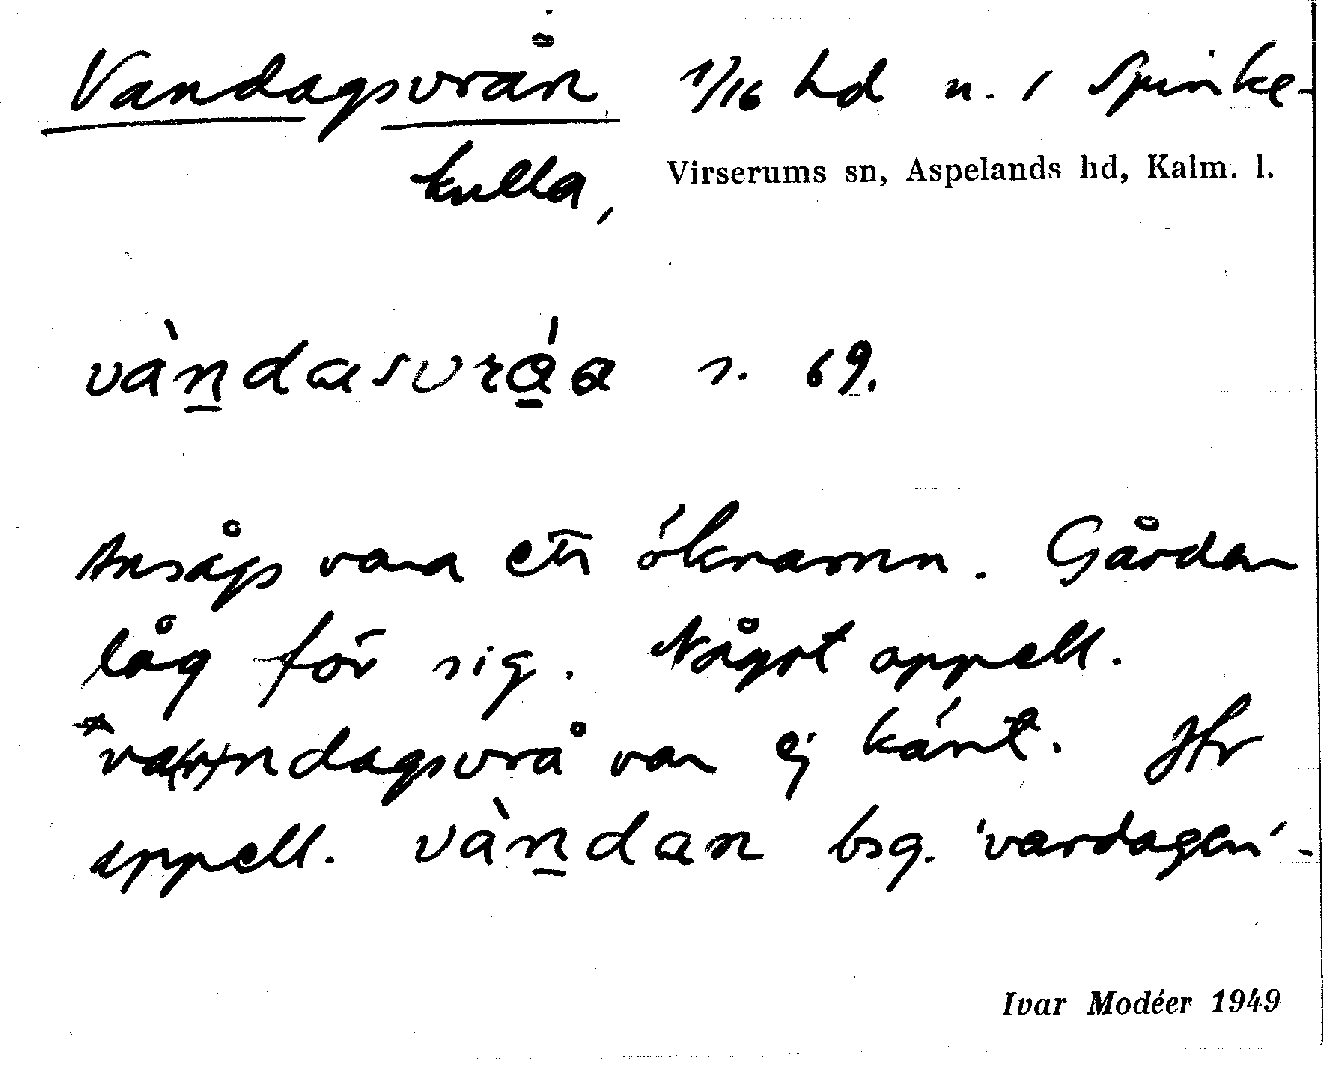 Vandagsvrån 1/16 hd n. 1 Spinke-
kulla,
Virserums sn, Aspelands hd, Kalm. l.
và̀n̲dasvrá̲a s. 69.
Ansågs vara ett öknamn. Gården
låg för sig. Något appell.
*va(r)ndagsvrå var ej känt. Jfr
appell. vàn̲dan bsg. 'vardagen'.
Ivar Modéer 1949